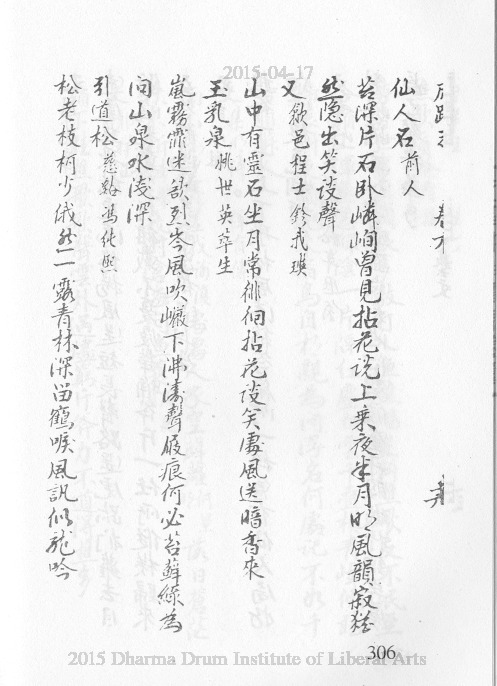 2015-04-17
仙人石 前人
苔深片石臥嶙峋曾見拈花說上乘夜半月明風韻寂猶
然隱出笑談聲
又 歙邑程士鈴我璵
山中有靈石坐月常徘徊拈花談笑處風送暗香來
玉乳泉 姚世英萃生
嵐霧霏迷欲烈岑風吹巘下沸濤聲屐痕何必苔蘚綠為
問山泉水淺深
引道松 慈谿馮純熙
松老枝柯少俄然一露青林深留鶴唳風訊似龍吟
306
2015 Dharma Drum Institute of Liberal Arts